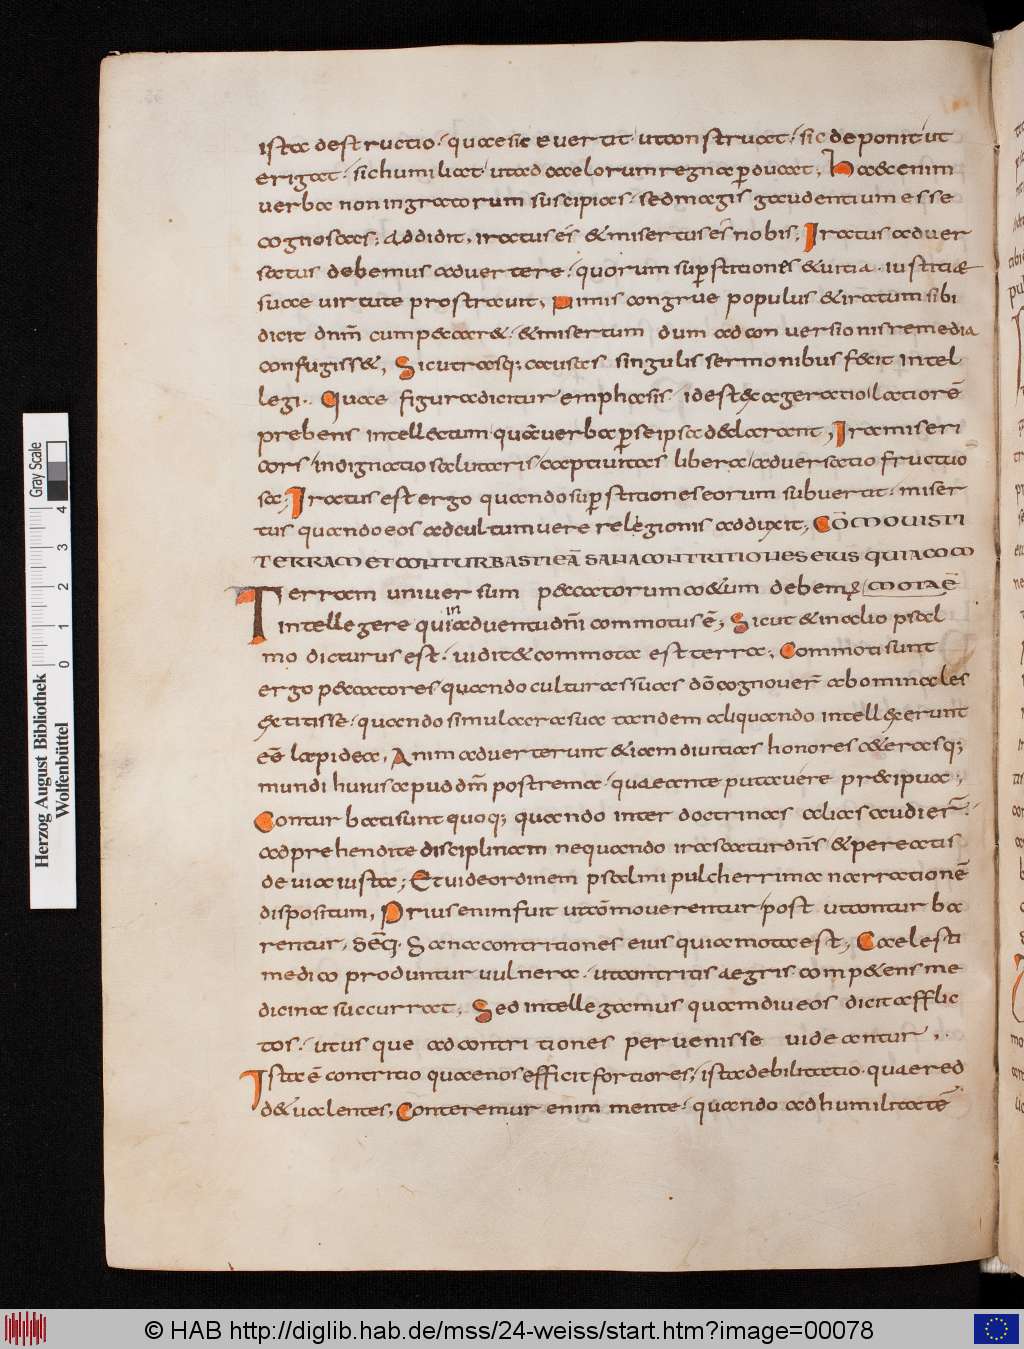 ista destructio · quae sic euertit ut construat · sic deponit ut
erigat · sic humiliat ut ad caelorum regna p̄ducat; Haec enim
uerba non ingratorum suscipias · sed magis gaudentium esse
cognoscas; Addidit, iratus es & misertus es nobis; Iratus aduer
satus debemus aduertere · quorum sup̄stitiones & uitia · iustitiae
suae uirtute prostrauit, Nimis congrue populus & iratum sibi
dicit dnm̄ cum peccar& · & misertum dum ad conuersionis remedia
confugiss&, Sicut rasq; causas singulis sermonibus fecit intel
legi · Quae figura dicitur emphasis · id est exaggeratio latiorē
prebens intellectum quā uerba p̄ se ipsa declarant, Ira miseri
cors / indignatio salutaris / captiuitas libera / aduersatio fructuo
sa; Iratus est ergo quando sup̄stitiones eorum subuertit · miser
tus quando eos ad cultum uere religionis adduxit; COMMOUISTI
TERRAM ET CONTURBASTI EĀ SANA CONTRITIONES EIUS QUIA COM
Terram uniuersum peccatorum coetum debemus MOTA Ē
intellegere qui in aduentu dn̄i commotus ē, Sicut & in alio psal
mo dicturus est · uidit & commota est terra; Commoti sunt
ergo peccatores quando culturas suas dō cognouer̄ abominales
extitisse · quando simulacra sua tandem aliquando intellexerunt
eē lapidea, Animaduerterunt & iam diuitias honores ceterasq;
mundi huius apud dm̄ postrema · quae ante putauere precipua;
Conturbati sunt quoq; quando inter doctrinas alias audier̄ ·
adprehendite disciplinam nequando irascatur dn̄s & pereatis
de uia iusta; Et uide ordinem psalmi pulcherrima narrationē
dispositum, Prius enim fuit ut cōmouerentur / post ut conturba
rentur, Seq̄ · Sana contritiones eius quia mota est; Caelesti
medico produntur uulnera · ut contritis aegris compe&ens me
dicina succurrat, Sed intellegamus quamdiu eos dicit afflic
tos · ut usque ad contritiones peruenisse uideantur,
Ista ē contritio quae nos efficit fortiores; ista debilitatio · quae red
d& ualentes; Conteremur enim mente · quando ad humilitatē
Gray Scale
0 1 2 3 4
Herzog August Bibliothek
Wolfenbüttel
© HAB http://diglib.hab.de/mss/24-weiss/start.htm?image=00078